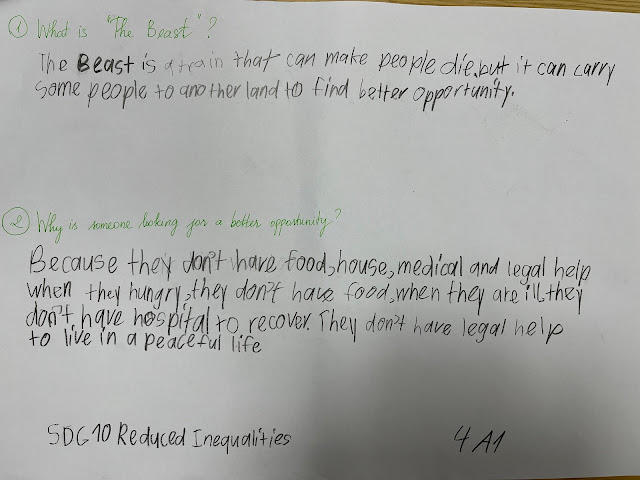 ① What is "The Beast"?
The Beast is a train that can make people die, but it can carry
some people to another land to find better opportunity.
② Why is someone looking for a better opportunity?
Because they don't have food, house, medical and legal help
when they hungry, they don't have food, when they are ill, they
don't have hospital to recover. They don't have legal help
to live in a peaceful life
SDG 10 Reduced Inequalities
4 A1